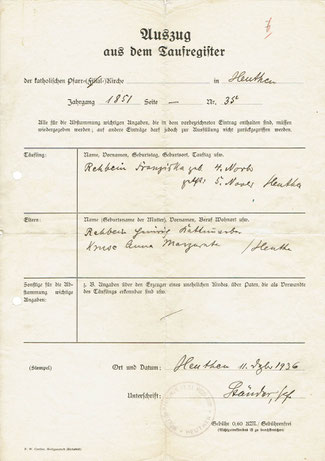 Auszug
aus dem Taufregister
der katholischen Pfarr-(Filial-)Kirche in Heuthen
Jahrgang 1851 Seite — Nr. 35
Alle für die Abstammung wichtigen Angaben, die in dem vorbezeichneten Eintrag enthalten sind, müssen
wiedergegeben werden; auf andere Einträge darf jedoch zur Ausfüllung nicht zurückgegriffen werden.
Täufling:
Name, Vornamen, Geburtstag, Geburtsort, Tauftag usw.
Rehbein Franziska geb 4. Novbr
5. Novbr Heuthen
Eltern:
Name (Geburtsname der Mutter), Vornamen, Beruf, Wohnort usw.
Rehbein
Kruse Anna Margareta / Heuthen
Sonstige für die Ab-
stammung wichtige
Angaben:
z. B. Angaben über den Erzeuger eines unehelichen Kindes oder Paten, die als Verwandte
des Täuflings erkennbar sind usw.
(Stempel)
Ort und Datum: Heuthen 11. Dzbr 1936
Unterschrift: Ständer,
Gebühr 0,60 RM./Gebührenfrei
(Nichtzutreffendes ist zu durchstreichen)